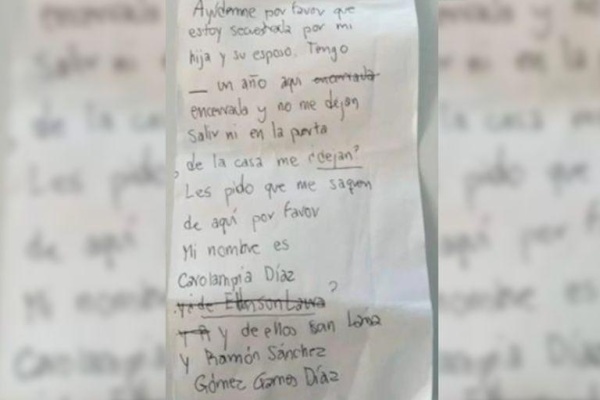 Ayúdenme por favor que
estoy secuestrada por mi
hija y su esposo. Tengo
_ un año aquí encerrada
encerrada y no me dejan
Salir ni en la puerta
de la casa me dejan?
Les pido que me saquen
de aquí por favor
Mi nombre es
Carolampia Díaz
y de Ellos son Laura ?
y de ellos son Laña
y Ramón Sánchez
Gómez Gamos Díaz